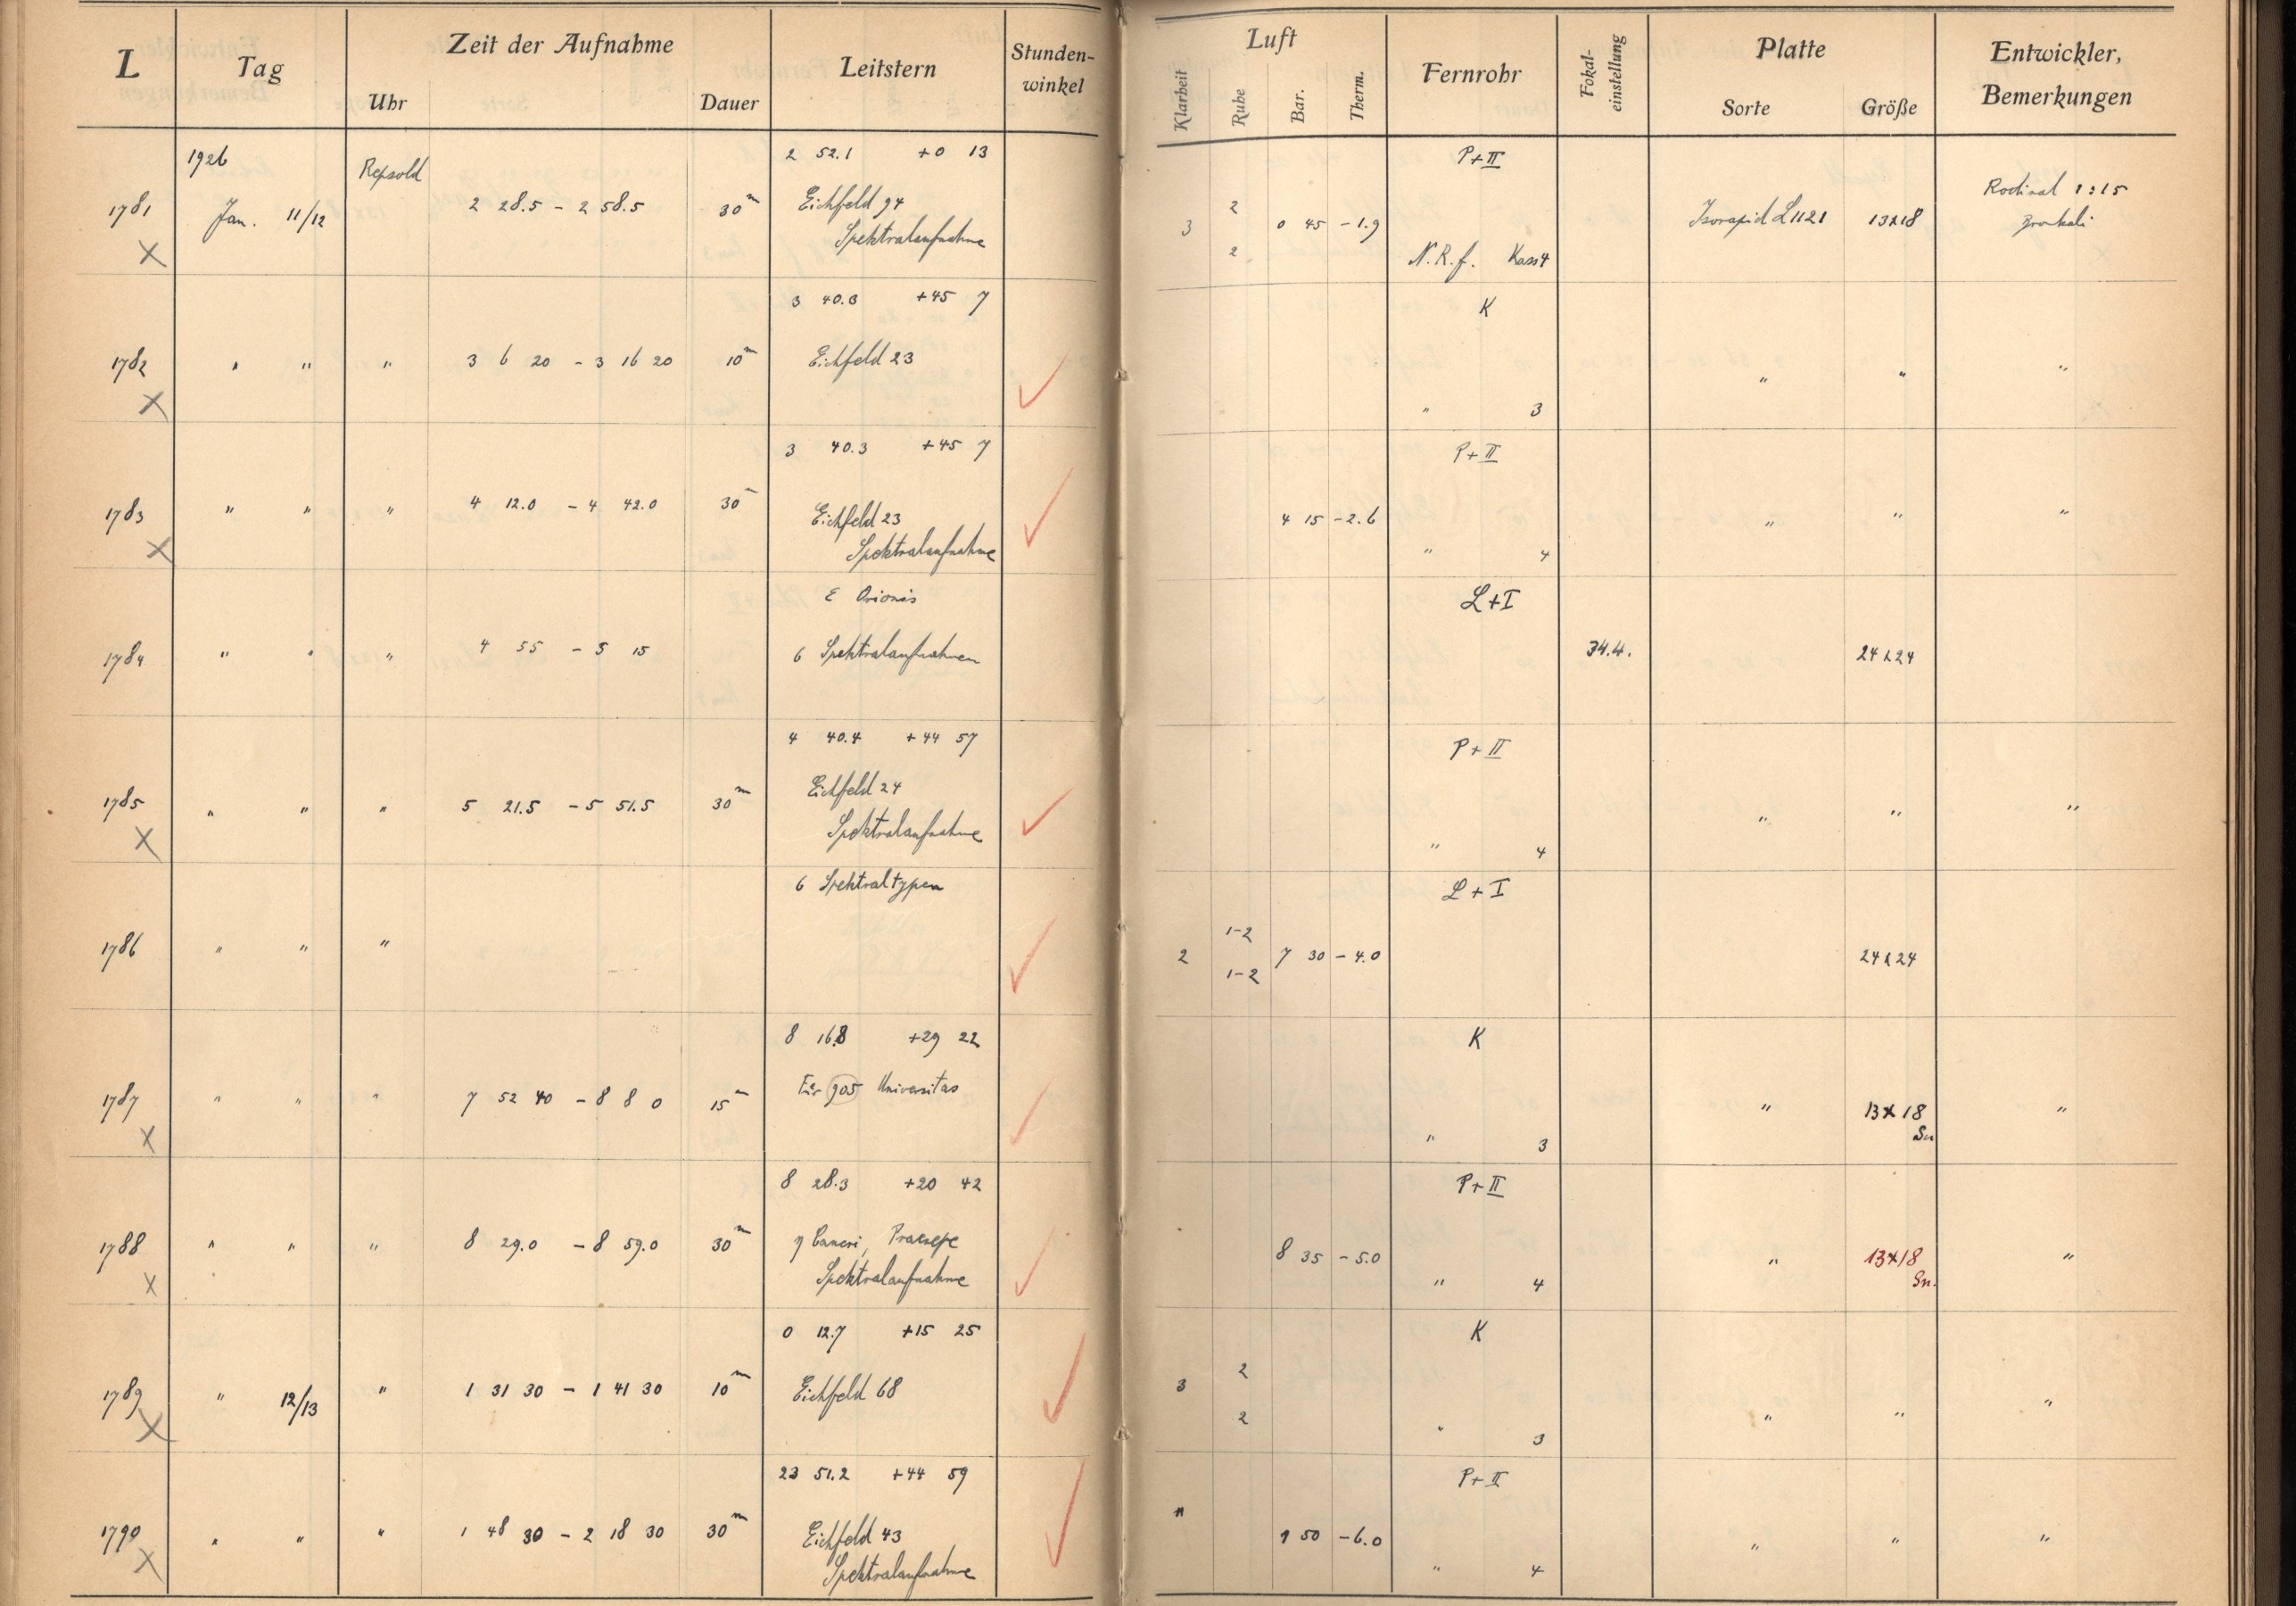 L Tag Zeit der Aufnahme Leitstern Stunden-winkel Luft Fernrohr Fokal-einstellung Platte Entwickler, Bemerkungen
Uhr Dauer Klarheit Ruhe Bar. Therm. Sorte Größe
1926 Repsold 2 52.1 +0 13 P+II
1781 Jan. 11/12 2 28.5 - 2 58.5 30m Eichfeld 94 3 2 0 45 -1.9 Isorapid L1121 13x18 Rodinal 1:15
X Spektralaufnahme 2 N.R.f. Kass 4
3 40.3 +45 7 K
1782 " " " 3 6 20 - 3 16 20 10m Eichfeld 23 " " "
X ✓ " 3
3 40.3 +45 7 P+II
1783 " " " 4 12.0 - 4 42.0 30m Eichfeld 23 ✓ 4 15 -2.6 " " "
X Spektralaufnahme " 4
ε Orionis L+I
1784 " " " 4 55 - 5 15 6 Spektralaufnahmen 34.4. 24x24
4 40.4 +44 57 P+II
1785 " " " 5 21.5 - 5 51.5 30m Eichfeld 24 ✓ " " "
X Spektralaufnahme " 4
6 Spektraltypen L+I
1786 " " " ✓ 2 1-2 7 30 -4.0 24x24
1-2
8 16.8 +29 22 K
1787 " " " 7 52 40 - 8 8 0 15m Für 905 Universitas ✓ " 13x18 "
X " 3 Sn
8 28.3 +20 42 P+II
1788 " " " 8 29.0 - 8 59.0 30m η Cancri, Praesepe 8 35 -5.0 " 13x18 "
X Spektralaufnahme ✓ " 4 Sn.
0 12.7 +15 25 K
1789 " 12/13 " 1 31 30 - 1 41 30 10m Eichfeld 68 ✓ 3 2 " " "
X 2 " 3
23 51.2 +44 59 P+II
1790 " " " 1 48 30 - 2 18 30 30m Eichfeld 43 ✓ " 1 50 -6.0 " " "
X Spektralaufnahme " 4